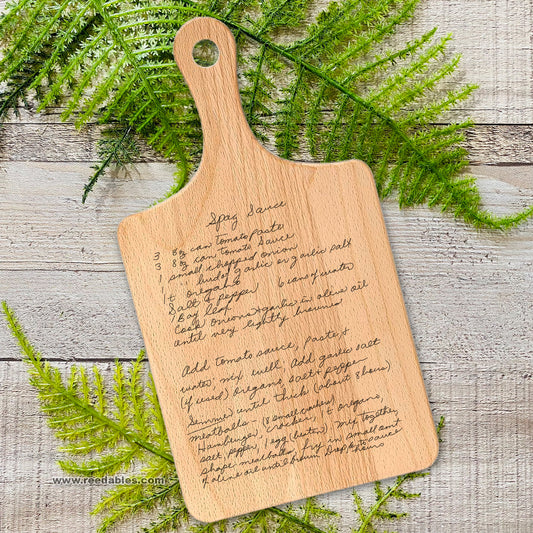 Spag Sauce
3 8oz can tomato paste
3 8oz can tomato sauce
1 small chopped onion
1 bud of garlic or garlic salt
1 t oregano
Salt & pepper 6 cans of water
1 Bay leaf
Cook onions & garlic in olive oil
until very lightly browned
Add tomato sauce, paste &
water, mix well, add garlic salt
(if used) oregano, salt & pepper
Simmer until thick (about 3 hours)
meatballs - (8 small crackers)
Hamburger, cracker, 1 t oregano,
salt, pepper, 1 egg (beaten) mix together,
shape meatballs, fry in small amt
of olive oil until brown. Drop into sauce
www.reedables.com